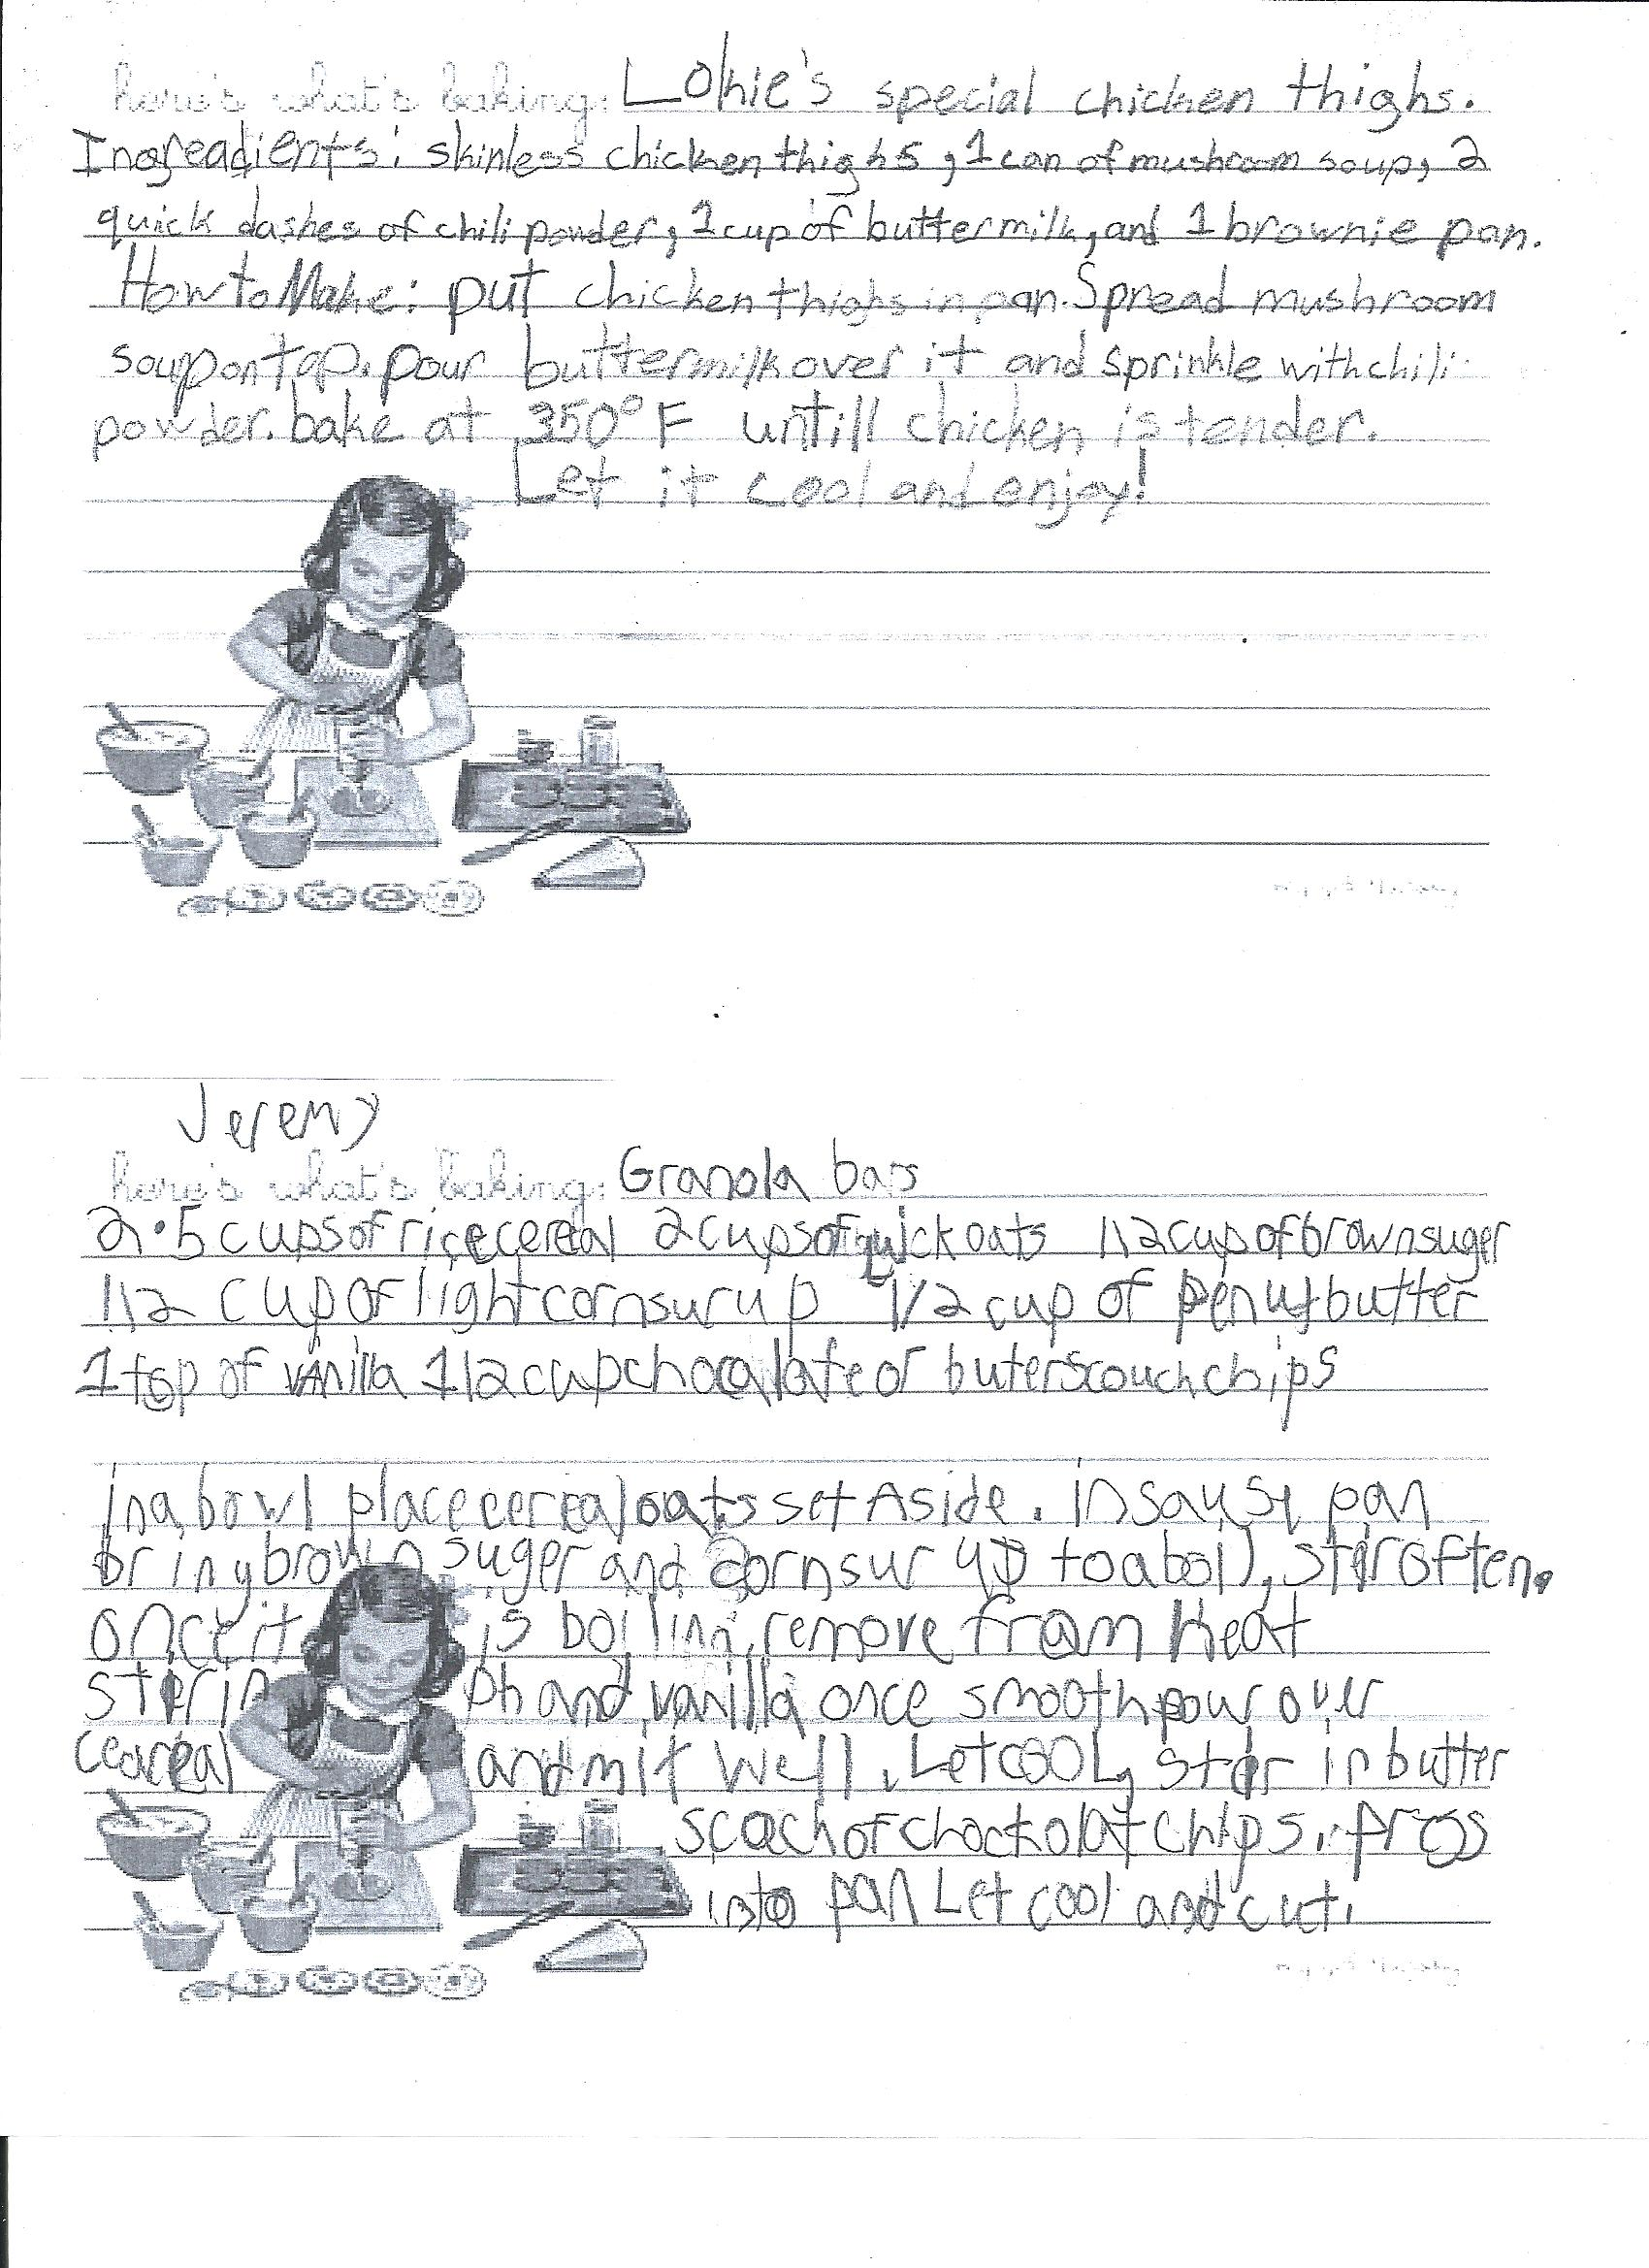 here's what's baking: Lokie's special chicken thighs.
Ingreadients: skinless chicken thighs, 1 can of mushroom soup, 2
quick dashes of chili powder, 1 cup of buttermilk, and 1 brownie pan.
How to Make: put chicken thighs in pan. Spread mushroom
soup on top. pour buttermilk over it and sprinkle with chili
powder. bake at 350°F untill chicken is tender.
Let it cool and enjoy!
Jeremy
here's what's baking: Granola bars
2.5 cups of rice cereal 2 cups of quick oats 1\2 cup of brown suger
1\2 cup of light corn surup 1/2 cup of penut butter
1 tsp of vanilla 1\2 cup chocalate or buterscouch chips
in a bowl place cereal oats set Aside. in sause pan
bring brown suger and corn surup to a boil, stir often.
once it is boiling remove from Heat
sterin pb and vanilla once smooth pour over
ceareal and mix well. Let cool, stir in butter
scoch or chockolat chips. press
into pan Let cool and cut.